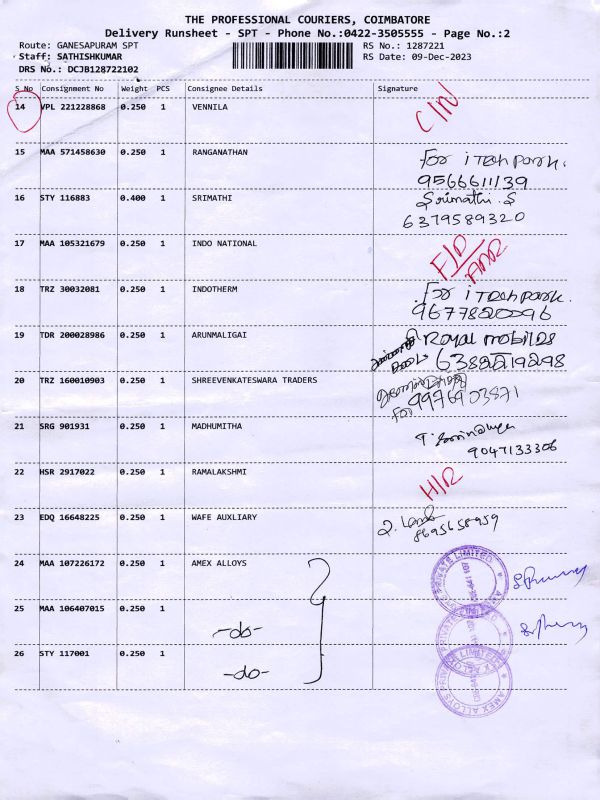 THE PROFESSIONAL COURIERS, COIMBATORE
Delivery Runsheet - SPT - Phone No.:0422-3505555 - Page No.:2
Route: GANESAPURAM SPT
RS No.: 1287221
Staff: SATHISHKUMAR
RS Date: 09-Dec-2023
DRS No.: DCJB128722102
S No Consignment No Weight PCS Consignee Details Signature
14 VPL 221228868 0.250 1 VENNILA C/N
15 MAA 571458630 0.250 1 RANGANATHAN For i Tech park.
9566611139
16 STY 116883 0.400 1 SRIMATHI Srimathi.S
6379589320
17 MAA 105321679 0.250 1 INDO NATIONAL F/D
18 TRZ 30032081 0.250 1 INDOTHERM For i Tech park.
19 TDR 200028986 0.250 1 ARUNMALIGAI Royal mobiles
20 TRZ 160010903 0.250 1 SHREEVENKATESWARA TRADERS
For 9976903871
21 SRG 901931 0.250 1 MADHUMITHA
9047133306
22 HSR 2917022 0.250 1 RAMALAKSHMI H/R
23 EDQ 16648225 0.250 1 WAFE AUXLIARY
8695658959
24 MAA 107226172 0.250 1 AMEX ALLOYS
25 MAA 106407015 0.250 1 -do-
26 STY 117001 0.250 1 -do-
AMEX ALLOYS PRIVATE LIMITED